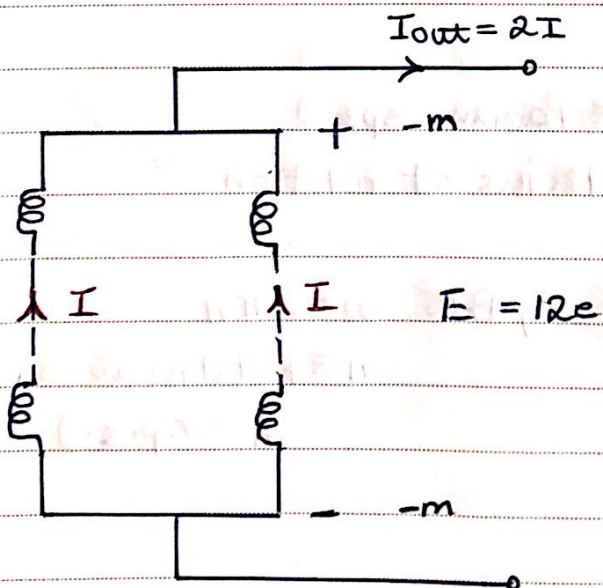 Iout = 2I
+ -m
I
I
E = 12e
- -m